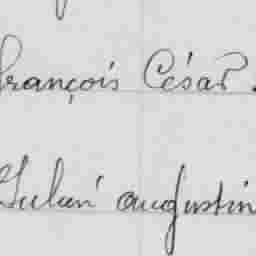 françois César.
Julien augustin